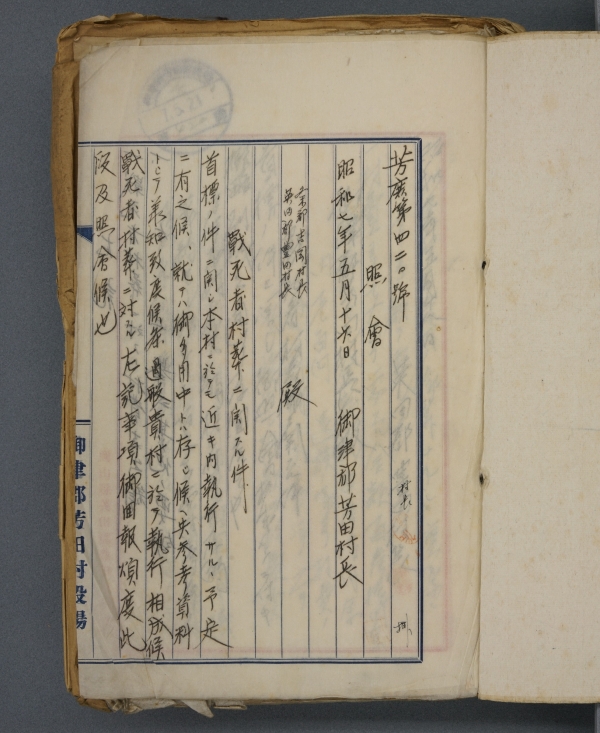 芳庶第四二〇號
照會
昭和七年五月十六日
御津郡芳田村長
英田郡豊田村長
殿
戰死者村葬ニ関スル件
首標ノ件ニ関シ本村ニ於テモ近キ内執行サルヽ予定
ニ有之候、就テハ御多用中トハ存シ候ヘ共参考資料
トシテ承知致度候条過般貴村ニ於テ執行相成候
戰死者村葬ニ対スル左記事項御回報煩度此
段及照會候也
村長
御津郡芳田村役場